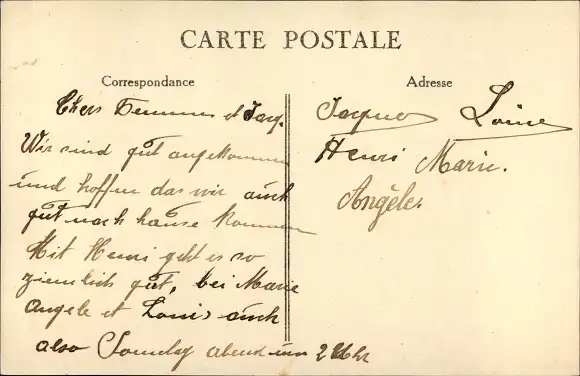 CARTE POSTALE
Correspondance
Chers et Jacq.
Wir sind gut angekommen
und hoffen das wir auch
gut nach hause kommen
Mit Henri geht es so
ziemlich gut, bei Marie
Angele et Louis auch
also Sonndag abend um 2 Uhr
Adresse
Jacques Louise
Henri Marie.
Angèle.